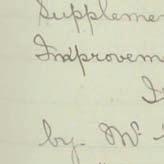 Suppleme
Improvem
by Mr